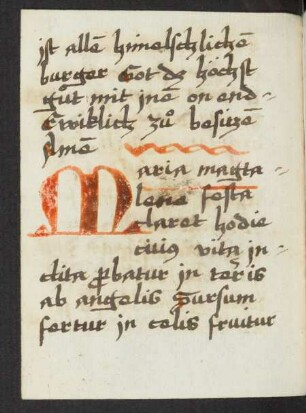 ist allē himelschlichē
burger Got dz höchst
gůt mit inē on end-
Ewiklich zů besizē
Amē
Maria magta-
lena festa
claret hodie
cuius vita in-
clita p̱batur in terris
ab angelis sursum
fertur in celis fruitur